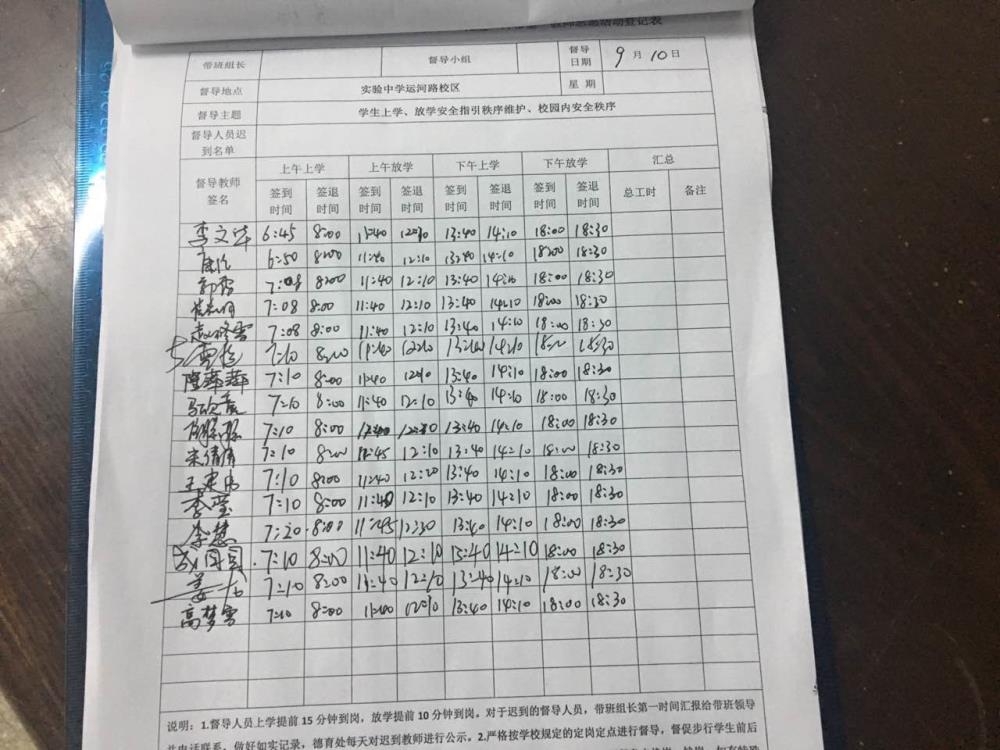 教师志愿活动登记表
带班组长 督导小组 督导日期 9月10日
督导地点 实验中学运河路校区 星期
督导主题 学生上学、放学安全指引秩序维护、校园内安全秩序
督导人员迟到名单
督导教师签名 上午上学 上午放学 下午上学 下午放学 汇总
签到时间 签退时间 签到时间 签退时间 签到时间 签退时间 签到时间 签退时间 总工时 备注
李文华 6:45 8:00 11:40 12:10 13:40 14:10 18:00 18:30
6:50 8:00 11:40 12:10 13:40 14:10 18:00 18:30
郭霞 7:08 8:00 11:40 12:10 13:40 14:10 18:00 18:30
7:08 8:00 11:40 12:10 13:40 14:10 18:00 18:30
赵修雪 7:08 8:00 11:40 12:10 13:40 14:10 18:00 18:30
7:10 8:00 11:40 12:10 13:40 14:10 18:00 18:30
陈萍萍 7:10 8:00 11:40 12:10 13:40 14:10 18:00 18:30
7:10 8:00 11:40 12:10 13:40 14:10 18:00 18:30
7:10 8:00 13:40 14:10 18:00 18:30
宋倩倩 7:10 8:00 11:45 12:10 13:40 14:10 18:00 18:30
7:10 8:00 11:40 12:20 13:40 14:10 18:00 18:30
李莹 7:10 8:00 11:40 12:10 13:40 14:10 18:00 18:30
徐慧 7:20 8:00 11:45 12:30 13:40 14:10 18:00 18:30
成周圆 7:10 8:00 11:40 12:10 15:40 14:10 18:00 18:30
7:10 8:00 11:40 12:10 13:40 14:10 18:00 18:30
高梦雪 7:10 8:00 11:40 12:10 13:40 14:10 18:00 18:30
说明：1.督导人员上学提前15分钟到岗，放学提前10分钟到岗。对于迟到的督导人员，带班组长第一时间汇报给带班领导
并电话联系，做好如实记录，德育处每天对迟到教师进行公示。2.严格按学校规定的定岗定点进行督导，督促步行学生前后